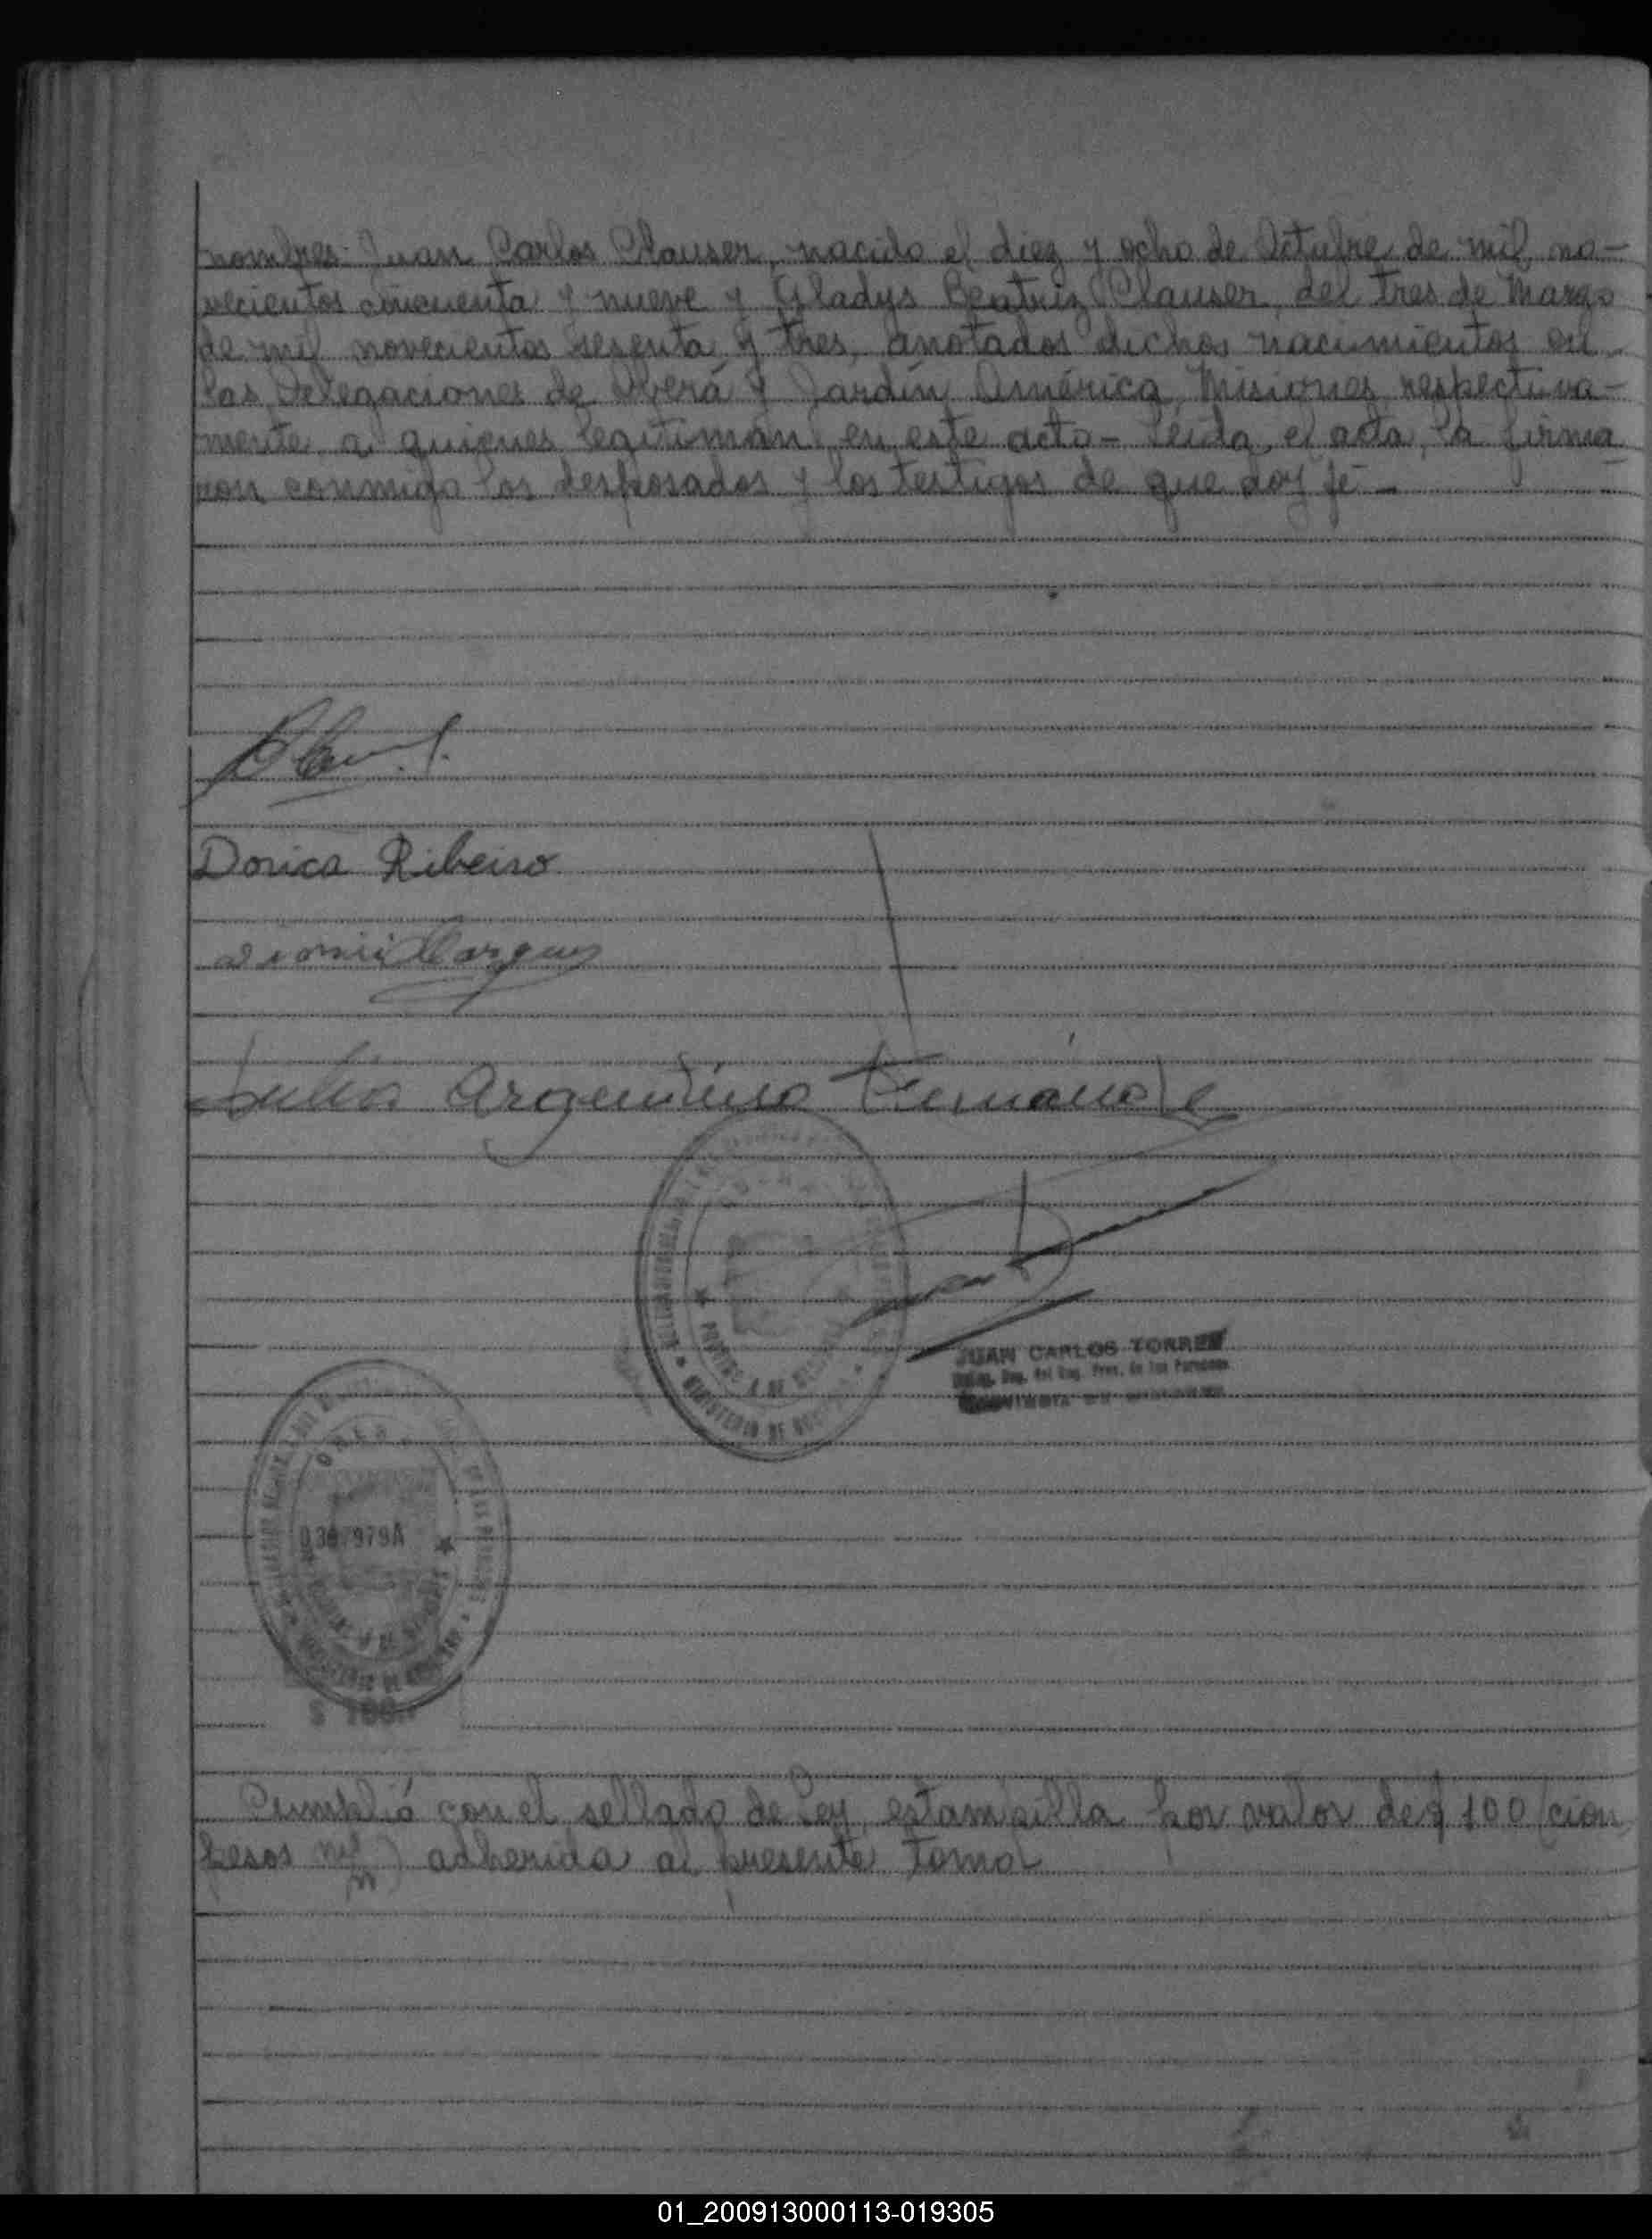 nombres: Juan Carlos Clauser, nacido el diez y ocho de Octubre de mil no-
vecientos cincuenta y nueve y Gladys Beatriz Clauser, del tres de Marzo
de mil novecientos sesenta y tres, anotados dichos nacimientos en
las Delegaciones de Oberá y Jardín América, Misiones, respectiva-
mente, a quienes legitiman en este acto - Leída el acta, la firma
ron conmigo los desposados y los testigos de que doy fe -
Dorica Ribeiro
Julio Argentino
JUAN CARLOS TORRES
MINISTERIO DE
0 979A
$ 100
Cumplió con el sellado de Ley, estampilla por valor de $ 100 (cien
pesos m/n) adherida al presente tomo
01_200913000113-019305